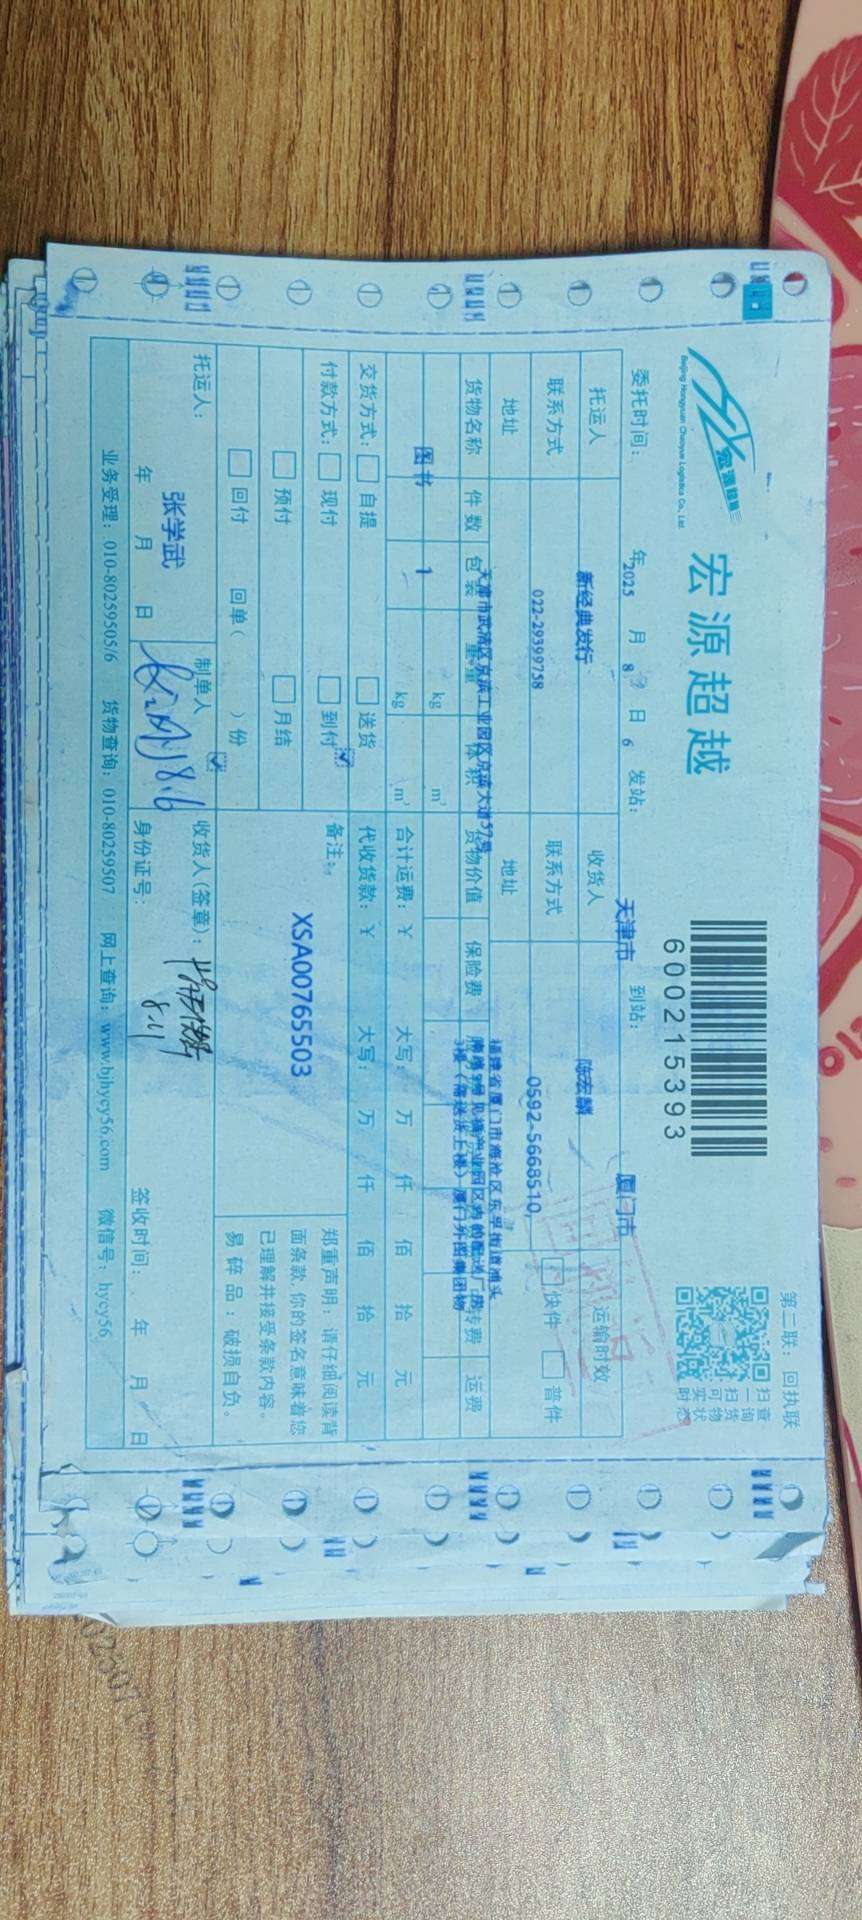 第二联：回执联
宏源超越
Beijing Hongyuan Chaoyue Logistics Co., Ltd.
宏源超越
600215393
扫一扫可实时
查询货物状态
委托时间： 2025 年 8 月 6 日 发站： 天津市 到站： 厦门市
托运人 新经典发行 收货人 陈宏麟 运输时效
联系方式 022-29399758 联系方式 0592-5668510 快件 普件
地址 天津市武清区京滨工业园区京滨大道57号 地址 福建省厦门市海沧区东孚街道浦头
货物名称 件数 包装 重量 体积 货物价值 保险费 转费 运费
3楼（需送货上楼）厦门外图集团物
图书 1 kg m³
kg m³ 合计运费：￥ 大写： 万 仟 佰 拾 元
交货方式： 自提 送货 代收货款：￥ 大写： 万 仟 佰 拾 元
付款方式： 现付 到付 备注：
预付 月结 XSA00765503
回付 回单（ ）份
郑重声明：请仔细阅读背
面条款，你的签名意味着您
已理解并接受条款内容。
易碎品：破损自负。
托运人： 张学武 制单人 收货人(签章)：
8.6
8.11
年 月 日 身份证号： 签收时间： 年 月 日
业务受理：010-80259505/6 货物查询：010-80259507 网上查询：www.bjhycy56.com 微信号：hycy56